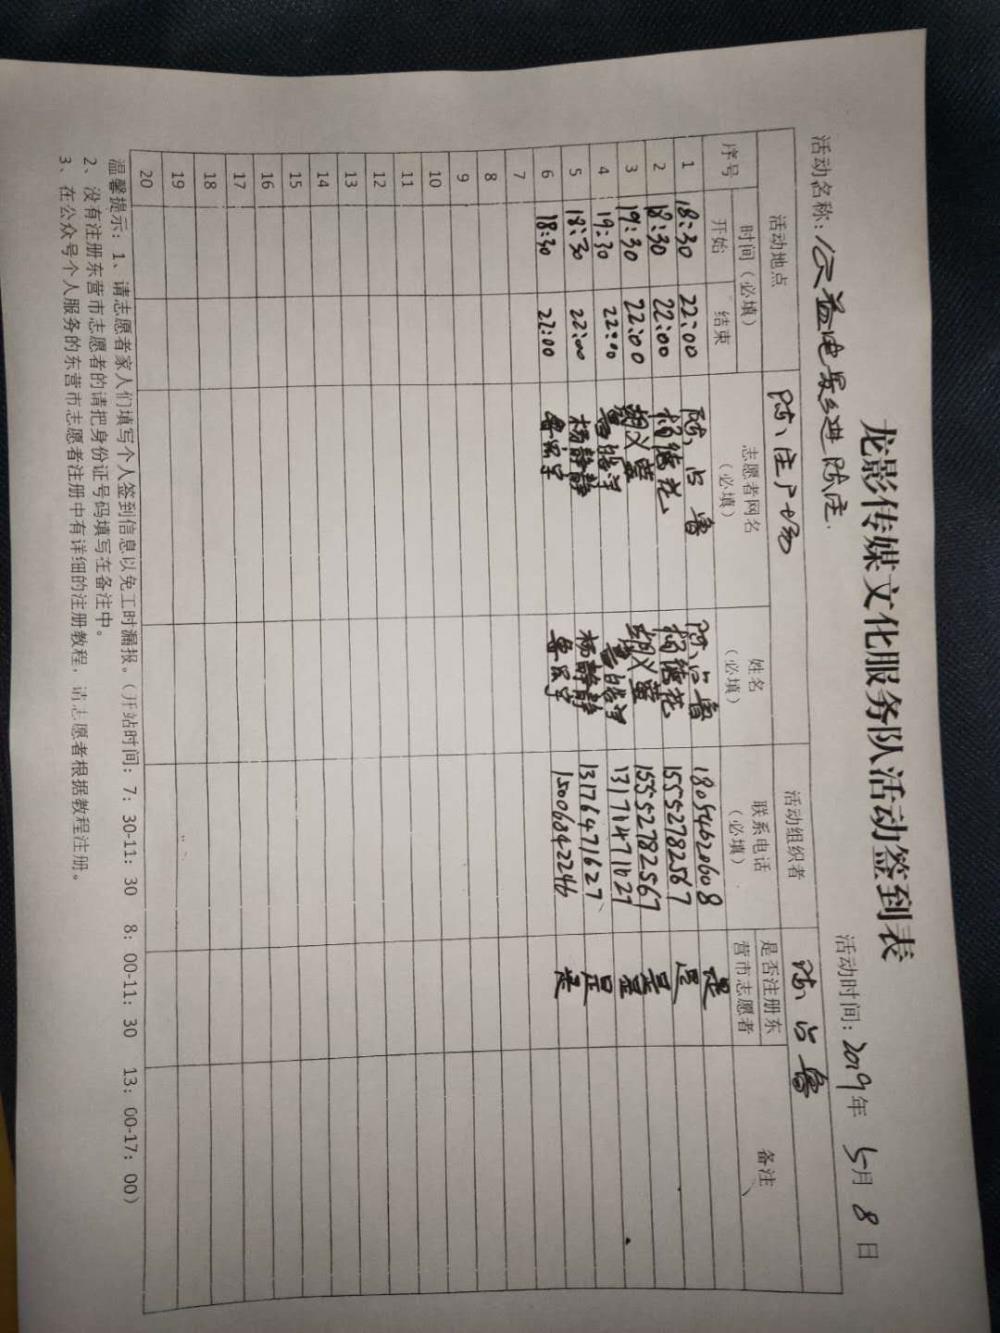 龙影传媒文化服务队活动签到表
活动名称：公益电影进陈庄. 活动时间：2019年 5月 8日
活动地点 陈庄广场 活动组织者 陈占鲁
序号 时间（必填） 志愿者网名（必填） 姓名（必填） 联系电话（必填） 是否注册东营市志愿者 备注
开始 结束
1 18:30 22:00 陈占鲁 陈占鲁 18054620608 是
2 18:30 22:00 杨德花 杨德花 15552782567 是
3 19:30 22:00 是
4 19:30 22:00 是
5 18:30 22:00 杨静静 杨静静 13176471627 是
6 18:30 22:00 15006842246 是
7
8
9
10
11
12
13
14
15
16
17
18
19
20
温馨提示：1、请志愿者家人们填写个人签到信息以免工时漏报。（开站时间：7：30-11：30 8：00-11：30 13：00-17：00）
2、没有注册东营市志愿者的请把身份证号码填写在备注中。
3、在公众号个人服务的东营市志愿者注册中有详细的注册教程，请志愿者根据教程注册。